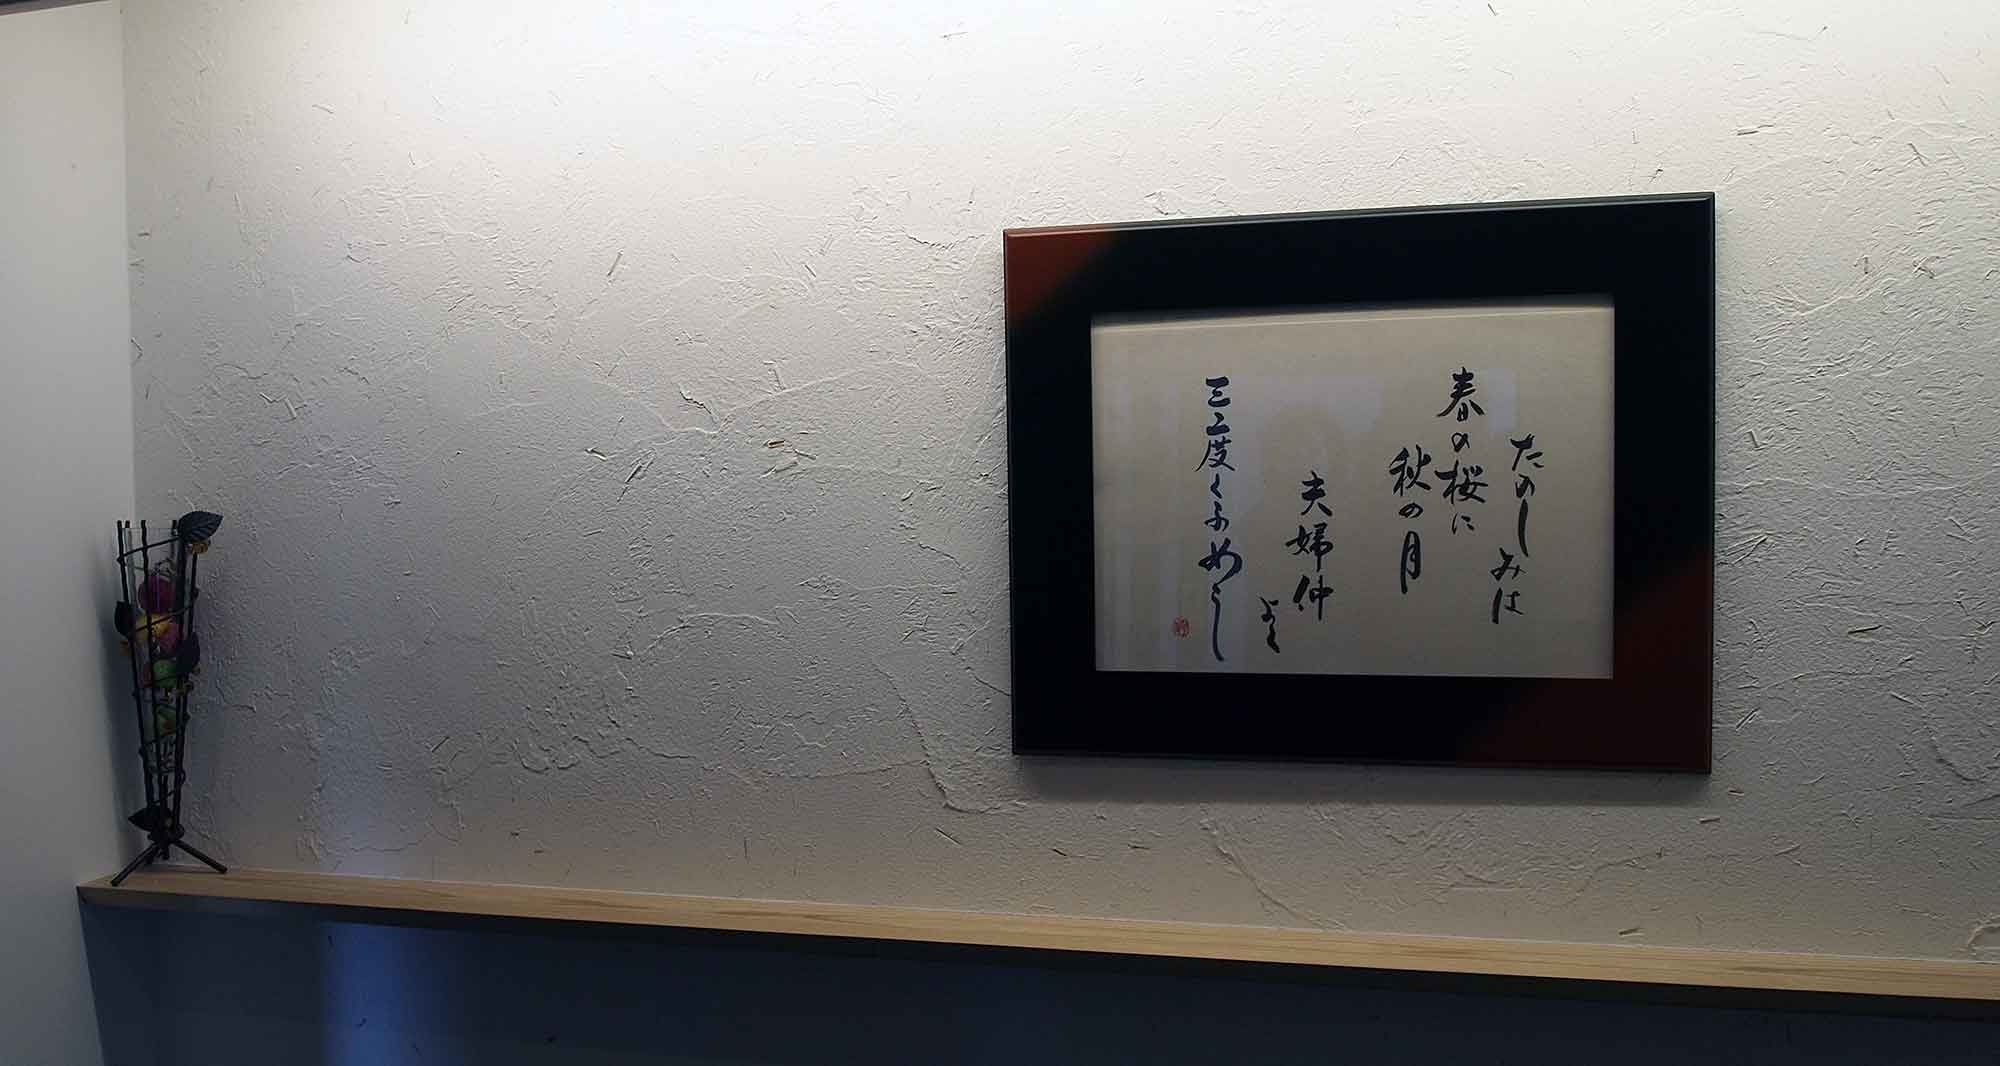 たのしみは
春の桜に
秋の月
夫婦仲
よく
三度くふめし